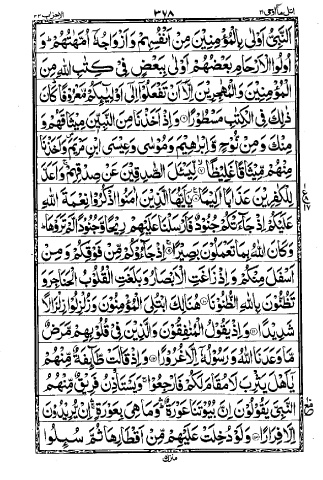 اتل مآاوحی ۲۱ ۳۷۸ الاحزاب ۳۳
اَلنَّبِىُّ اَوْلٰى بِالْمُؤْمِنِيْنَ مِنْ اَنْفُسِهِمْ وَاَزْوَاجُهٗٓ اُمَّهٰتُهُمْ ؕ وَ
اُولُوا الْاَرْحَامِ بَعْضُهُمْ اَوْلٰى بِبَعْضٍ فِىْ كِتٰبِ اللّٰهِ مِنَ
الْمُؤْمِنِيْنَ وَالْمُهٰجِرِيْنَ اِلَّاۤ اَنْ تَفْعَلُوْۤا اِلٰٓى اَوْلِيٰٓـئِكُمْ مَّعْرُوْفًا ؕ كَانَ
ذٰلِكَ فِى الْكِتٰبِ مَسْطُوْرًا ۞ وَاِذْ اَخَذْنَا مِنَ النَّبِيّٖنَ مِيْثَاقَهُمْ وَ
مِنْكَ وَمِنْ نُّوْحٍ وَّاِبْرٰهِيْمَ وَمُوْسٰى وَعِيْسَى ابْنِ مَرْيَمَ ۪ وَاَخَذْنَا
مِنْهُمْ مِّيْثَاقًا غَلِيْظًا ۞ لِّيَسْـَٔلَ الصّٰدِقِيْنَ عَنْ صِدْقِهِمْ ۚ وَاَعَدَّ
لِلْكٰفِرِيْنَ عَذَابًا اَلِيْمًا ۞ يٰٓاَيُّهَا الَّذِيْنَ اٰمَنُوا اذْكُرُوْا نِعْمَةَ اللّٰهِ
عَلَيْكُمْ اِذْ جَآءَتْكُمْ جُنُوْدٌ فَاَرْسَلْنَا عَلَيْهِمْ رِيْحًا وَّجُنُوْدًا لَّمْ تَرَوْهَا ؕ
وَكَانَ اللّٰهُ بِمَا تَعْمَلُوْنَ بَصِيْرًا ۞ اِذْ جَآءُوْكُمْ مِّنْ فَوْقِكُمْ وَمِنْ
اَسْفَلَ مِنْكُمْ وَاِذْ زَاغَتِ الْاَبْصَارُ وَبَلَغَتِ الْقُلُوْبُ الْحَنَاجِرَ وَ
تَظُنُّوْنَ بِاللّٰهِ الظُّنُوْنَا ۞ هُنَالِكَ ابْتُلِىَ الْمُؤْمِنُوْنَ وَزُلْزِلُوْا زِلْزَالًا
شَدِيْدًا ۞ وَاِذْ يَقُوْلُ الْمُنٰفِقُوْنَ وَالَّذِيْنَ فِىْ قُلُوْبِهِمْ مَّرَضٌ
مَّا وَعَدَنَا اللّٰهُ وَرَسُوْلُهٗٓ اِلَّا غُرُوْرًا ۞ وَاِذْ قَالَتْ طَّآئِفَةٌ مِّنْهُمْ
يٰٓاَهْلَ يَثْرِبَ لَا مُقَامَ لَكُمْ فَارْجِعُوْا ۚ وَيَسْتَاْذِنُ فَرِيْقٌ مِّنْهُمُ
النَّبِىَّ يَقُوْلُوْنَ اِنَّ بُيُوْتَنَا عَوْرَةٌ ؕ وَمَا هِىَ بِعَوْرَةٍ ۚ اِنْ يُّرِيْدُوْنَ
اِلَّا فِرَارًا ۞ وَلَوْ دُخِلَتْ عَلَيْهِمْ مِّنْ اَقْطَارِهَا ثُمَّ سُئِلُوا
منزل